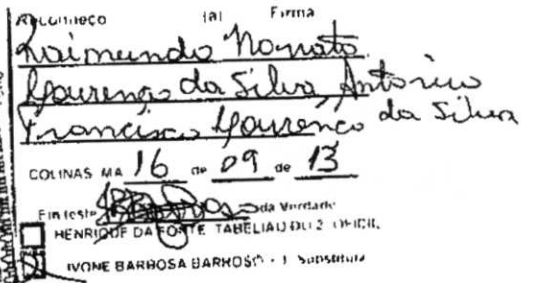 Reconheço (a) Firma
Raimundo Nonato
Lourenço da Silva, Antonio
Francisco Lourenço da Silva
COLINAS MA 16 de 09 de 13
Em teste da Verdade
HENRIQUE DA FONTE TABELIAO DO 2 OFICIL
IVONE BARBOSA BARROSO - 1 Substituta